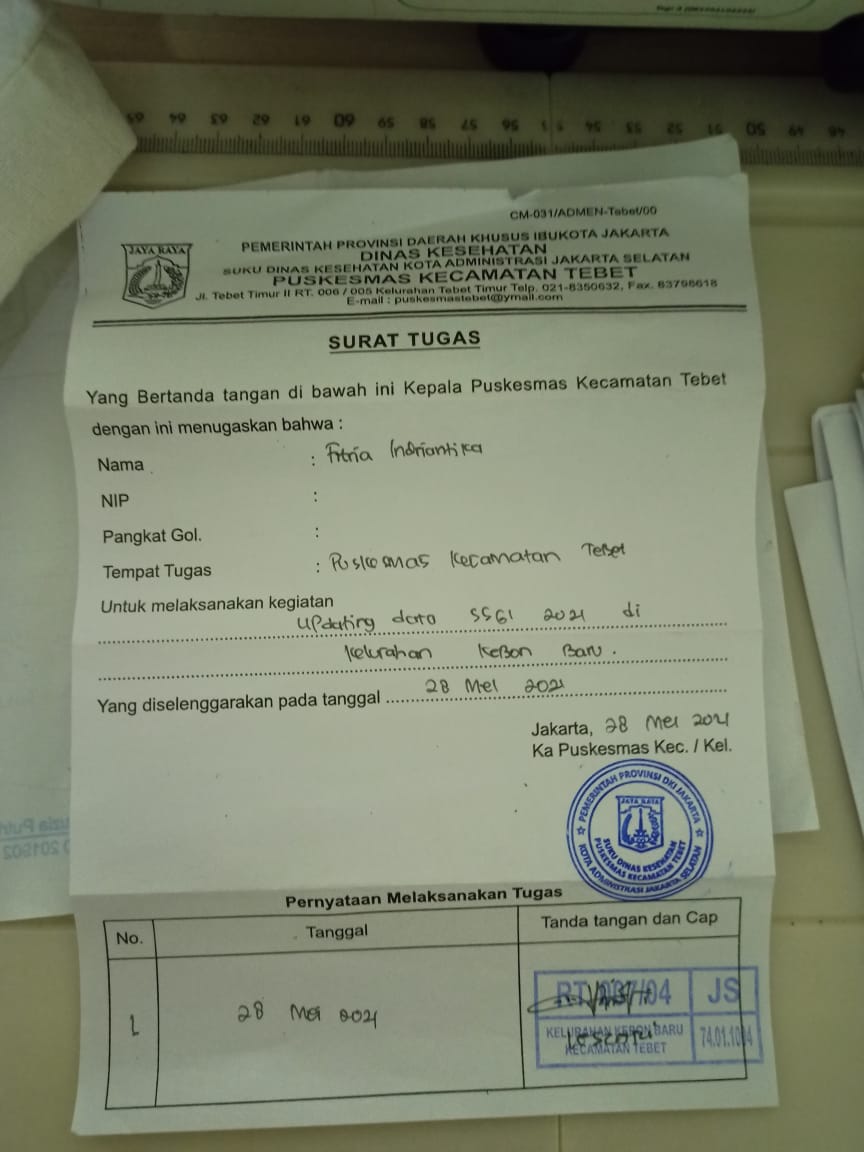 CM-031/ADMEN-Tebet/00
JAYA RAYA
PEMERINTAH PROVINSI DAERAH KHUSUS IBUKOTA JAKARTA
DINAS KESEHATAN
SUKU DINAS KESEHATAN KOTA ADMINISTRASI JAKARTA SELATAN
PUSKESMAS KECAMATAN TEBET
Jl. Tebet Timur II RT. 006 / 005 Kelurahan Tebet Timur Telp. 021-8350632, Fax. 83798618
E-mail : puskesmastebet@ymail.com
SURAT TUGAS
Yang Bertanda tangan di bawah ini Kepala Puskesmas Kecamatan Tebet
dengan ini menugaskan bahwa :
Nama : Fitria Indriantika
NIP :
Pangkat Gol. :
Tempat Tugas : Puskesmas Kecamatan Tebet
Untuk melaksanakan kegiatan
Updating data SSGI 2021 di
Kelurahan Kebon Baru.
Yang diselenggarakan pada tanggal 28 Mei 2021
Jakarta, 28 Mei 2021
Ka Puskesmas Kec. / Kel.
PEMERINTAH PROVINSI DKI JAKARTA
JAYA RAYA
SUKU DINAS KESEHATAN
PUSKESMAS KECAMATAN TEBET
KOTA ADMINISTRASI JAKARTA SELATAN
Pernyataan Melaksanakan Tugas
No. Tanggal Tanda tangan dan Cap
1 28 Mei 2021
RT 007/04 JS
KELURAHAN KEBON BARU
KECAMATAN TEBET